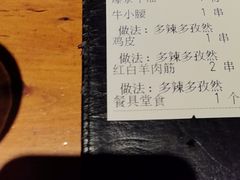 牛小腰 1 串
做法：多辣多孜然
鸡皮 1 串
做法：多辣多孜然
红白羊肉筋 2 串
做法：多辣多孜然
餐具堂食 1 个